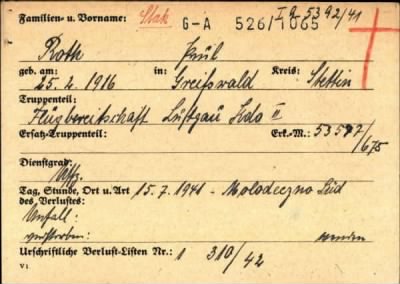 Familien- u. Vorname: Stak G-A 526/1065 I a 5392/41
Roth Paul
geb. am: in: Kreis:
25. 2. 1916 Greifswald Stettin
Truppenteil:
Flugbereitschaft Luftgau Kdo II
Ersatz-Truppenteil: Erk.-M.: 53577/675
Dienstgrad:
Uffz.
Tag, Stunde, Ort u. Art 15. 7. 1941 - Molodeczno Süd
des Verlustes:
Unfall:
verstorben:
Urschriftliche Verlust-Listen Nr.: 1 310/42
V1